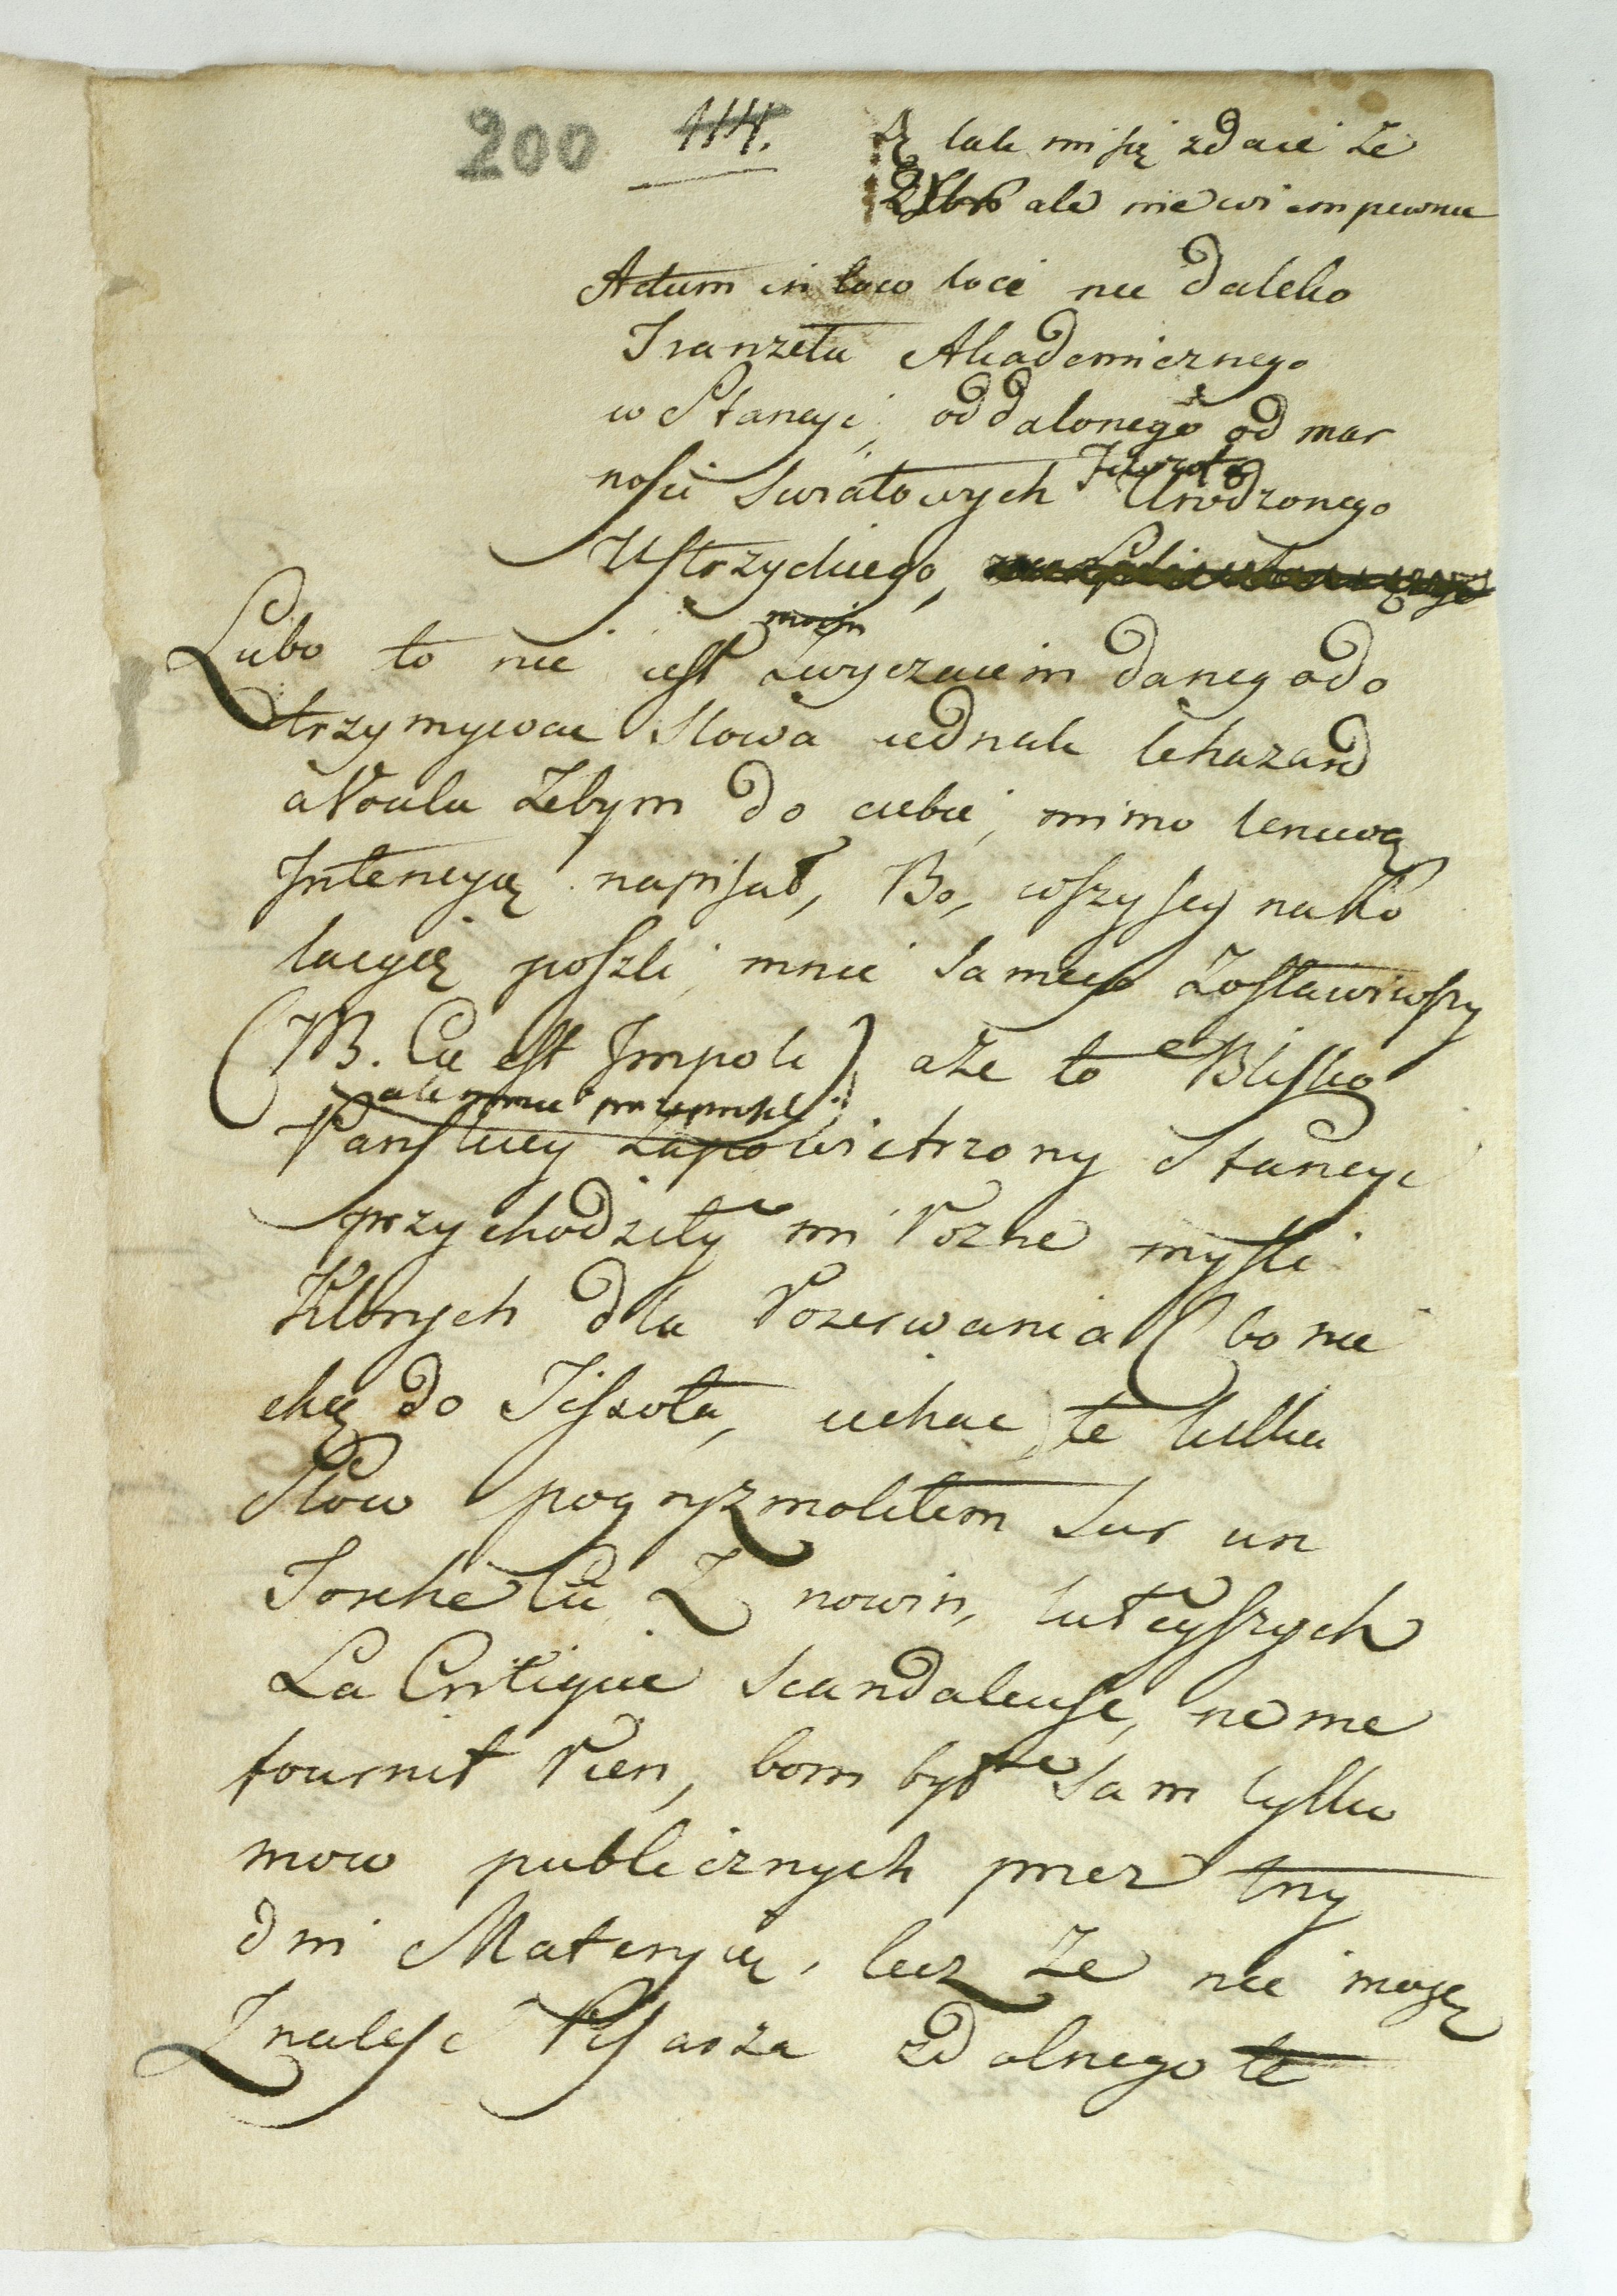 200 114.
tak mi się zdaie że
8bro ale nie wiem pewnie
Actum in loco loci nie daleko
Tranzetu Akademicznego
w Stancyi, oddalonego od mar
nosci Swiatowych Urodzonego
Ustrzyckiego,
moim
Lubo to nie iest zwyczaiem danego do
trzymywac Słowa iednak le hazard
a Voulu żebym do ciebie, mimo leniwą
Intencyą napisał, Bo, wszyscy na Ko
lacyią poszli, mnie samego Zostawiwszy
(NB. Ce est Impoli) aże to Blisko
ale mnie przeprosili
Panskiey Zapowietrzony Stancyi
przychodziły mi rozne mysli
Których dla Rozerwania (bo nie
chcę do Tissota, iechac) te kilka
Słow pogryzmoliłem sur un
Torchecu Z nowin, tuteyszych
La Critique Scandaleuse, ne me
fournit rien, bom był sam tylko
mow publicznych przez trzy
dni Materyią, lecz że nie mogę
Znalesc Pisarza zdolnego te